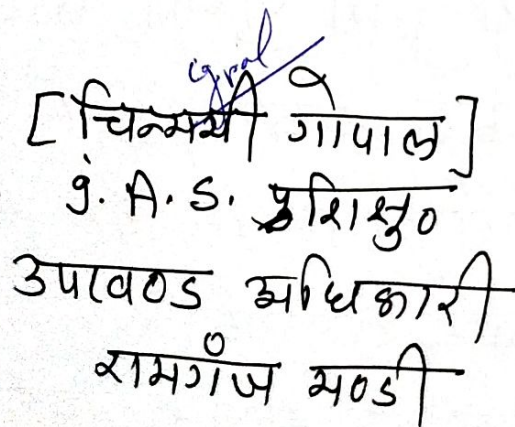 [चिन्मयी गोपाल]
I.A.S. प्रशिक्षु०
उपखण्ड अधिकारी
रामगंज मण्डी